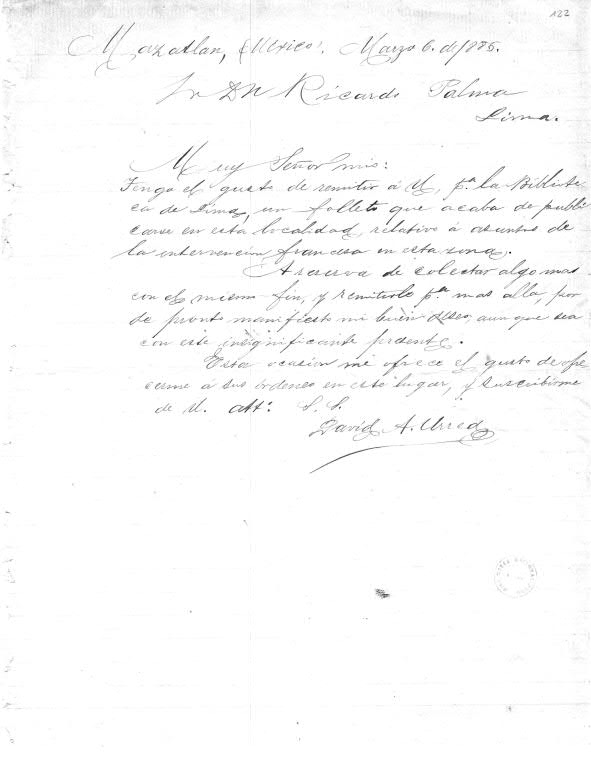 122
Mazatlan, (México). Marzo 6. de 1885.
Sr Dn Ricardo Palma
Lima.
Muy Señor mio:
Tengo el gusto de remitir á U, pa. la Bibliote
ca de Lima, un folleto que acaba de publi
carse en esta localidad, relativo á asuntos de
la intervencion francesa en esta zona.
A reserva de colectar algo mas
con el mismo fin, y remitirlo pa. mas allá, por
de pronto manifiesto mi buen deseo, aun que sea
con este insignificante presente.
Esta ocasion me ofrece el gusto de ofre
cerme á sus órdenes en este lugar, y suscribirme
de U. att: S. S.
David A. Urrea